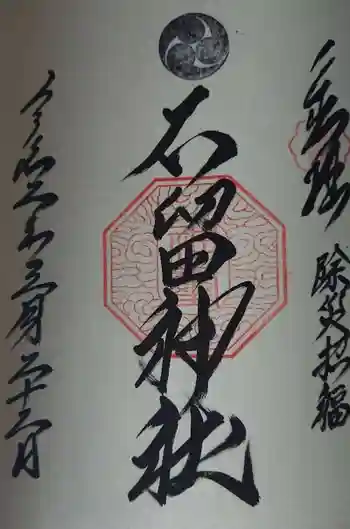 奉拝
除災招福
石留神社
令和 年三月二十 日